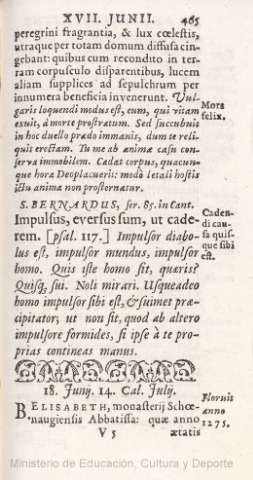 XVII. JUNII. 465
peregrini fragrantia, & lux cœlestis,
utraque per totam domum diffusa cin-
gebant: quibus cum recondito in ter-
ram corpusculo disparentibus, lucem
aliam supplices ad sepulchrum per
innumera beneficia invenerunt. Vul-
garis loquendi modus est, eum, qui vitam
exuit, à morte prostratum. Sed succubuit
in hoc duello prædo immanis, dum te reli-
quit erectam. Tu me ab animæ casu con-
serva immobilem. Cadat corpus, quacun-
que hora Deo placuerit: modò letali hostis
ictu anima non prosternatur.
Mors
felix.
S. BERNARDUS, ser. 85. in Cant.
Impulsus, eversus sum, ut cade-
rem. [psal. 117.] Impulsor diabo-
lus est, impulsor mundus, impulsor
homo. Quis iste homo sit, quæris?
Quisq; sui. Noli mirari. Usqueadeo
homo impulsor sibi est, & suimet præ-
cipitator, ut non sit, quod ab altero
impulsore formides, si ipse à te pro-
prias contineas manus.
Caden-
di cau-
sa quis-
que sibi
est.
18. Junij. 14. Cal. Julij.
BELISABETH, monasterij Schœ-
naugiensis Abbatissa: quæ anno
V 5 ætatis
Floruis
anno
1275.
Ministerio de Educación, Cultura y Deporte